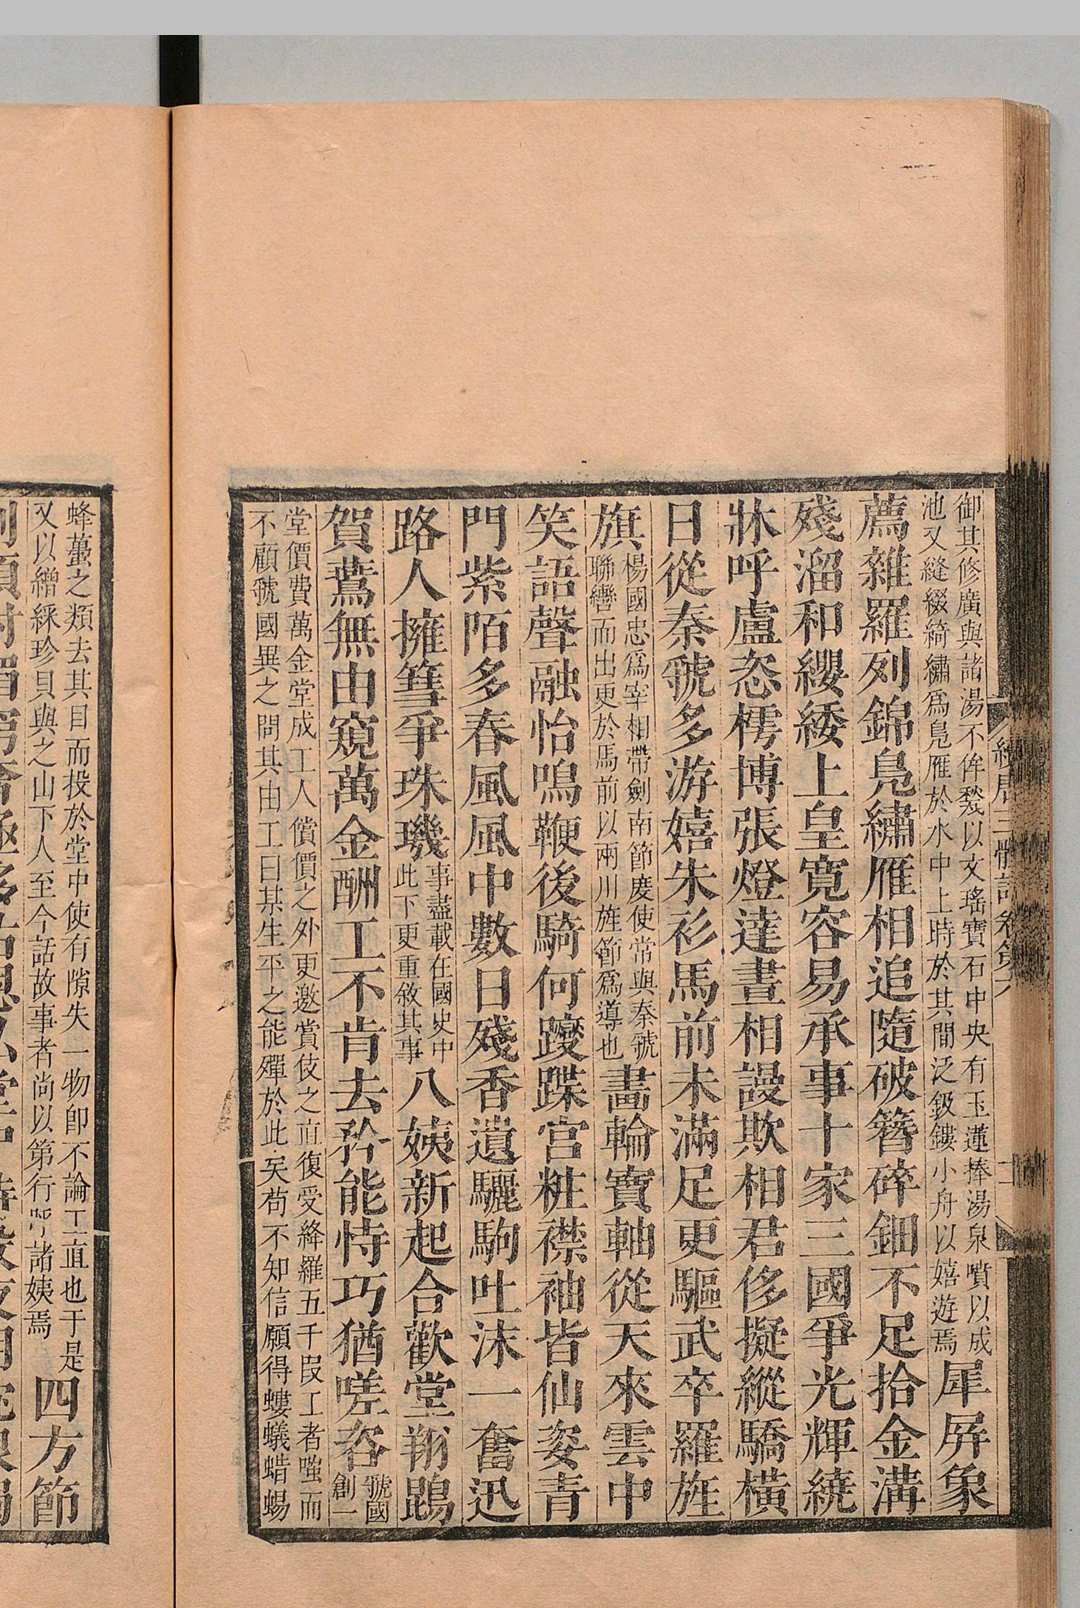 御其修廣與諸湯不侔甃以文瑤寶石中央有玉蓮捧湯泉噴以成
池又縫綴綺繡爲鳧雁於水中上時於其間泛鈒鏤小舟以嬉遊焉
犀屏象
薦雜羅列錦鳧繡雁相追隨破簪碎鈿不足拾金溝
殘溜和纓緌上皇寬容易承事十家三國爭光輝繞
牀呼盧恣樗博張燈達晝相謾欺相君侈擬縱驕橫
日從秦虢多游嬉朱衫馬前未滿足更驅武卒羅旌
旗
楊國忠爲宰相帶劍南節度使常與秦虢
聯轡而出更於馬前以兩川旌節爲導也
畫輪寶軸從天來雲中
笑語聲融怡鳴鞭後騎何躞蹀宮粧襟袖皆仙姿青
門紫陌多春風風中數日殘香遺驪駒吐沫一奮迅
路人擁篲爭珠璣
事盡載在國史中
此下更重敘其事
八姨新起合歡堂翔鵾
賀鷰無由窺萬金酬工不肯去矜能恃巧猶嗟咨
虢國
創一
堂價費萬金堂成工人償價之外更邀賞伎之直復受絳羅五千段工者嗤而
不顧虢國異之問其由工曰某生平之能殫於此矣苟不知信願得螻蟻蜡蜴
蜂蠆之類去其目而投於堂中使有隙失一物卽不論工直也于是
又以繒綵珍貝與之山下人至今話故事者尚以第行呼諸姨焉
四方節
續唐三體詩卷第六